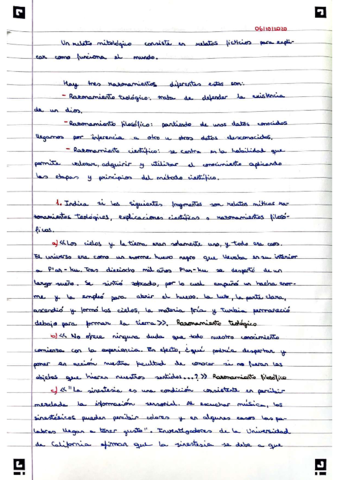 06/10/2020
Un relato mitológico consiste en relatos ficticios para expli-
car como funciona el mundo.
Hay tres razonamientos diferentes estos son:
- Razonamiento teológico: trata de defender la existencia
de un dios.
- Razonamiento filosófico: partiendo de unos datos conocidos
llegamos por inferencia a otro u otros datos desconocidos.
- Razonamiento científico: se centra en la habilidad que
permite valorar, adquirir y utilizar el conocimiento aplicando
las etapas y principios del método científico.
1. Indica si los siguientes fragmentos son relatos míticos ra-
zonamientos teológicos, explicaciones científicas o razonamientos filosó-
ficos.
a) «Los cielos y la tierra eran solamente uno, y todo era caos.
El universo era como un enorme huevo negro que llevaba en su interior
a P'an-ku. Tras dieciocho mil años P'an-ku se despertó de un
largo sueño. Se sintió sofocado, por lo cual empuñó un hacha enor-
me y la empleó para abrir el huevo. La luz, la parte clara,
ascendió y formó los cielos, la materia fría y turbia permaneció
debajo para formar la tierra». Razonamiento teológico
b) «No ofrece ninguna duda que todo nuestro conocimiento
comienza con la experiencia. En efecto, ¿qué podría despertar y
poner en acción nuestra facultad de conocer si no fueran los
objetos que hieren nuestros sentidos...?» Razonamiento filosófico
c) «"La sinestesia es una condición consistente en percibir
mezclada la información sensorial. Al escuchar música, los
sinestésicos pueden percibir colores y en algunos casos las pa-
labras llegan a tener gusto". Investigadores de la Universidad
de California afirman que la sinestesia se debe a que